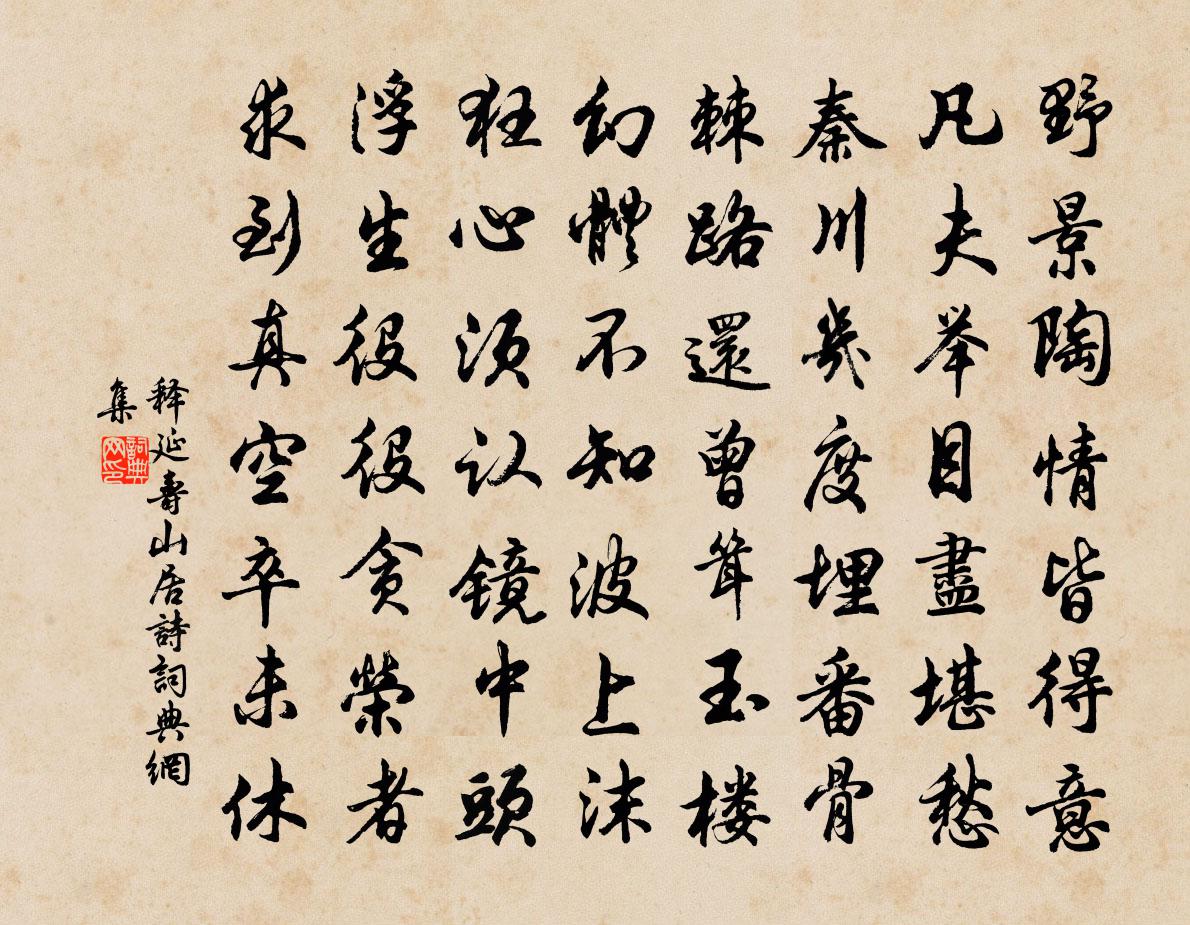 野景陶情皆得意
凡夫举目盡堪愁
秦川幾度埋番骨
棘路還曾耸玉楼
幻體不知波上沫
狂心须认镜中頭
浮生役役贪榮者
求到真空卒未休
释延壽山居詩詞典網
集
詞典
网印